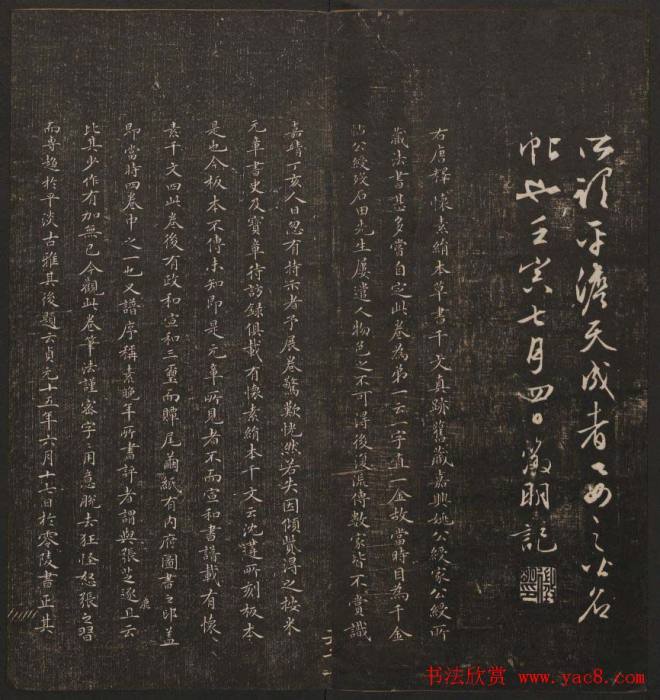 平淡天成者
帖也壬寅七月四日徵明記
右唐釋懷素絹本草書千文真跡舊藏嘉興姚公綬家公綬所
藏法書甚多嘗自定此卷為第一云一字直一金故當時目為千金
帖公綬歿石田先生屢遣人物色之不可得後復流傳數家皆不賞識
嘉靖丁亥人日忽有持示者予展卷驚歎恍然若失因傾貲得之按米
元章書史及寶章待訪錄俱載有懷素絹本千文云沈遘所刻板本
是也今板本不傳未知即是元章所見者不而宣和書譜載有懷〻
素千文四此卷後有政和宣和三璽而贉尾繭紙有內府圖書之印蓋
即當時四卷中之一也又譜序稱素晚年所書評者謂與張芝逐鹿且云
比其少作有加無已今觀此卷筆法謹密字〻用意脫去狂怪怒張之習
而專趨於平淡古雅其後題云貞元十五年六月十七日於零陵書正其
书法欣赏 www.yac8.com